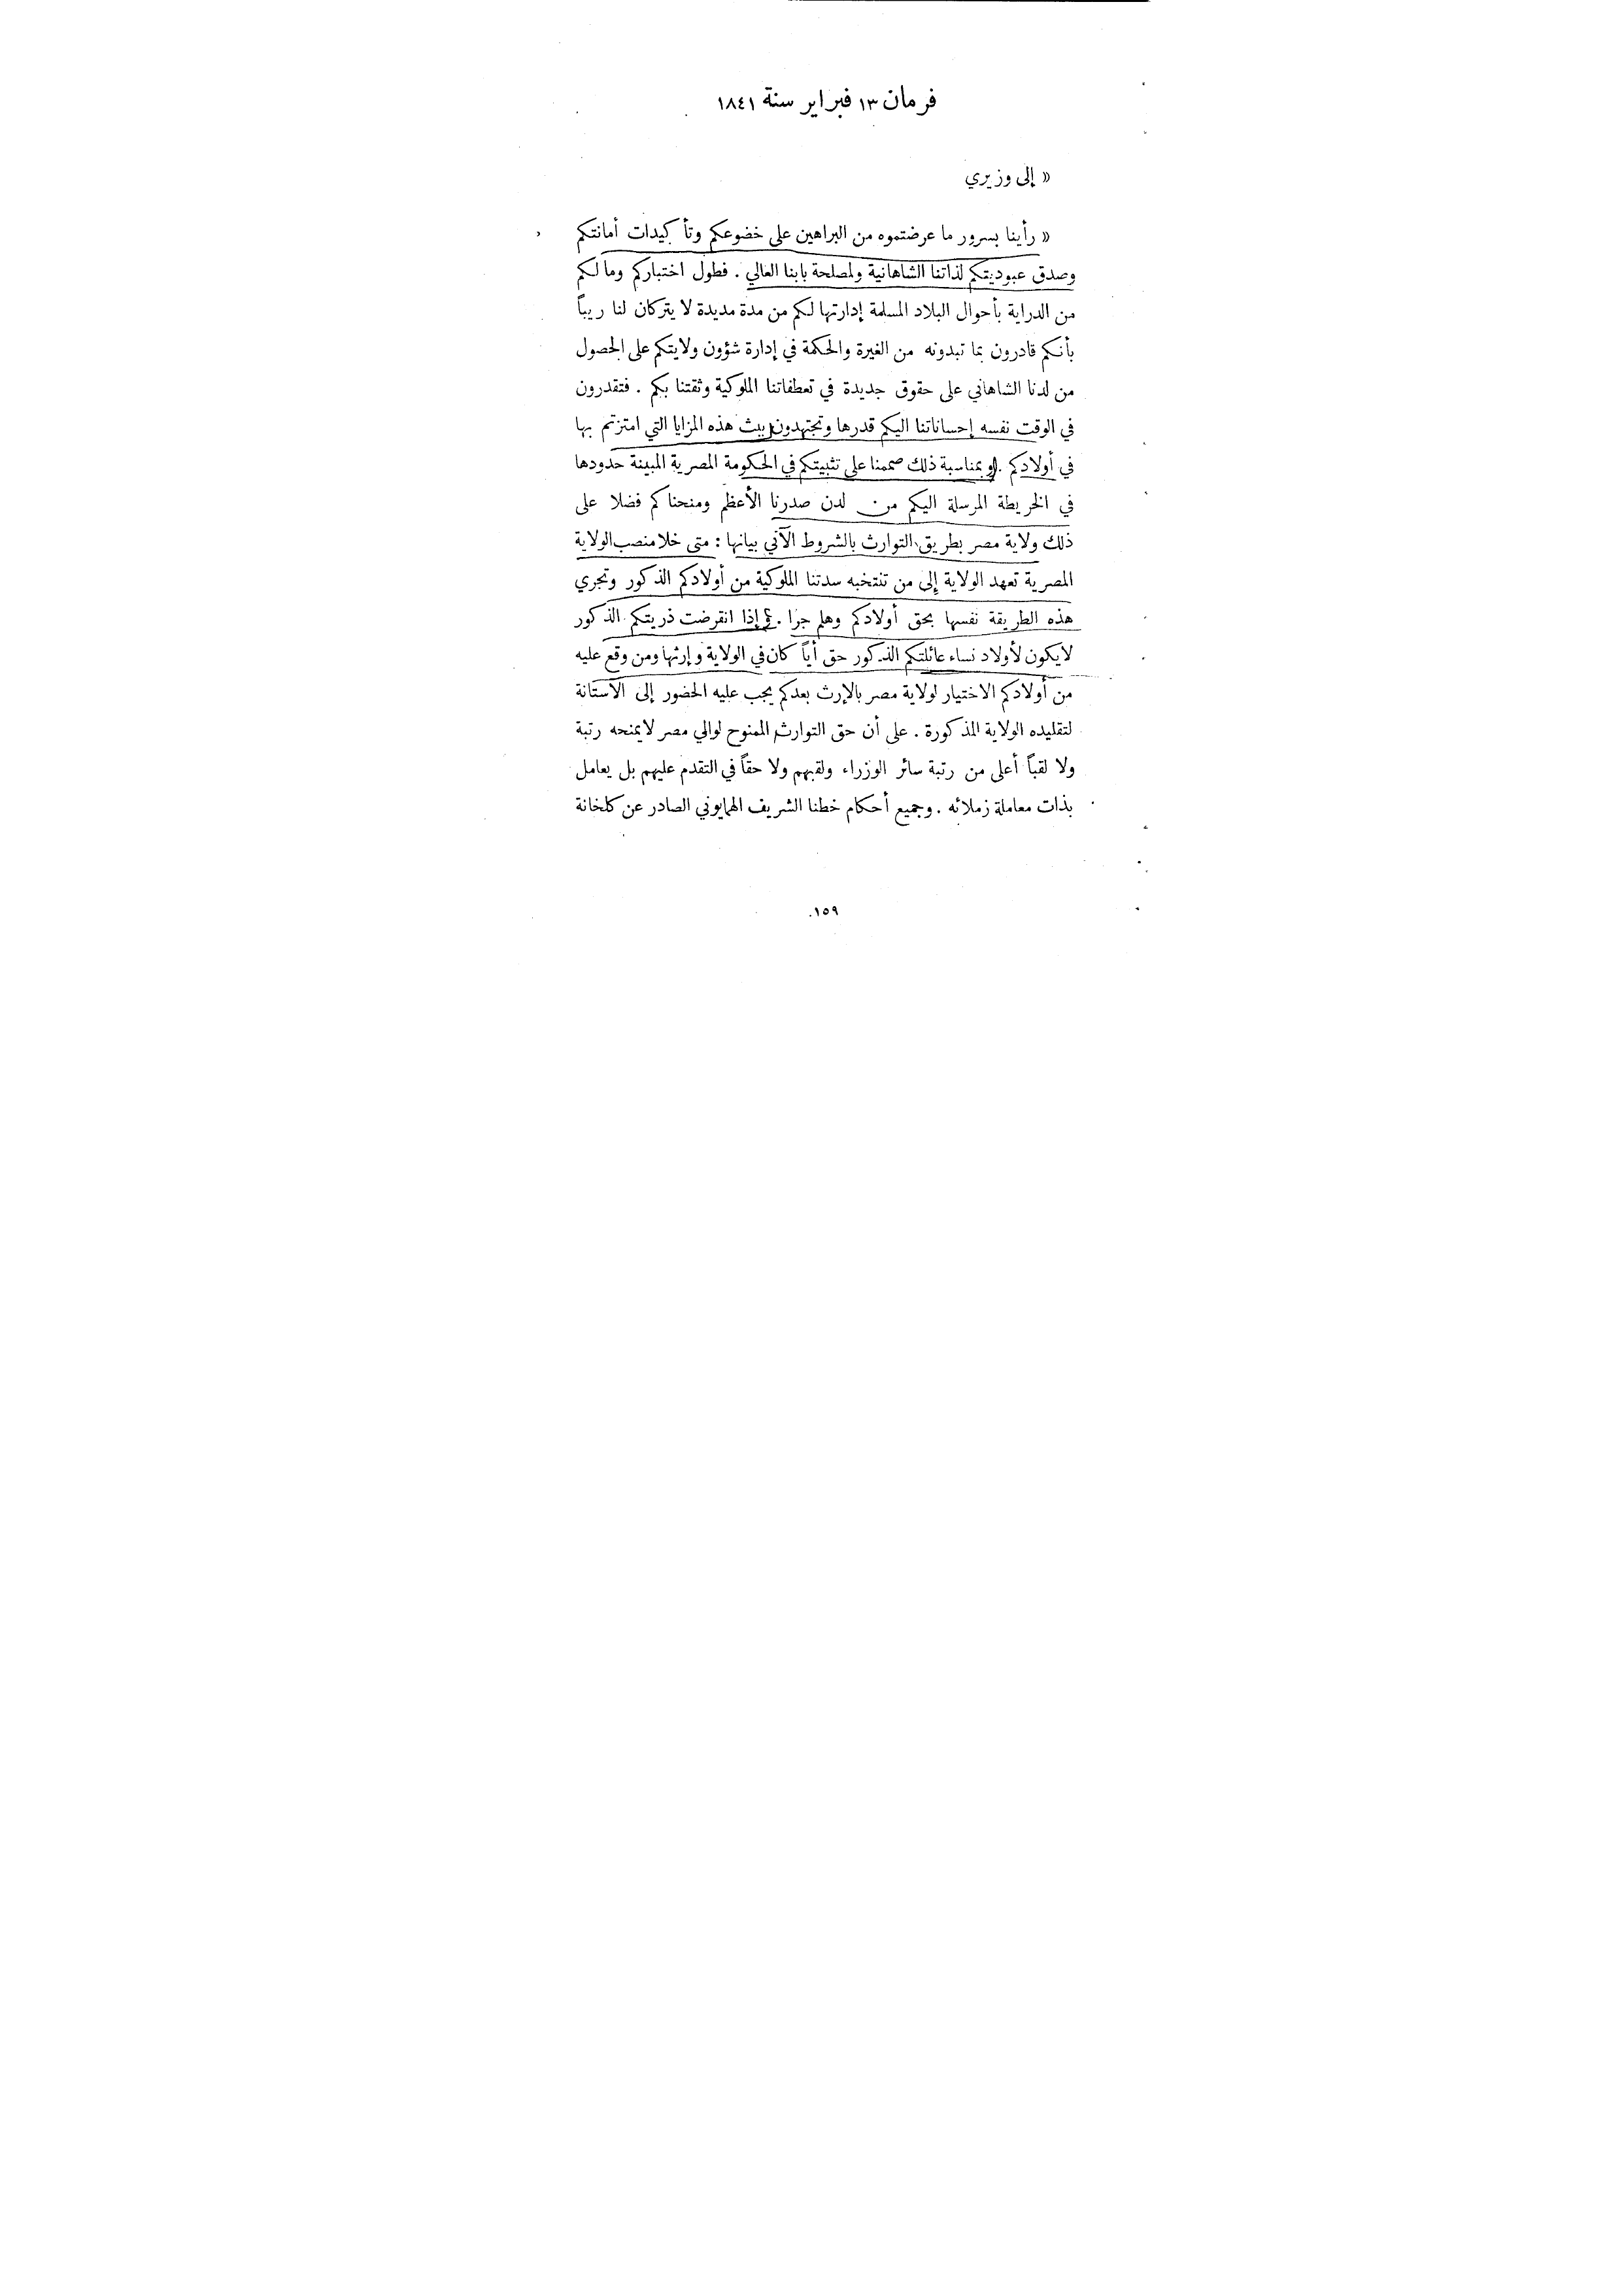 فرمان ١٣ فبراير سنة ١٨٤١
« إلى وزيري
« رأينا بسرور ما عرضتموه من البراهين على خضوعكم وتأكيدات أمانتكم
وصدق عبوديتكم لذاتنا الشاهانية ولمصلحة بابنا العالي . فطول اختباركم وما لكم
من الدراية بأحوال البلاد المسلمة إدارتها لكم من مدة مديدة لا يتركان لنا ريباً
بأنكم قادرون بما تبدونه من الغيرة والحكمة في إدارة شؤون ولايتكم على الحصول
من لدنا الشاهاني على حقوق جديدة في تعطفاتنا الملوكية وثقتنا بكم . فتقدرون
في الوقت نفسه إحساناتنا اليكم قدرها وتجتهدون ببث هذه المزايا التي امتزتم بها
في أولادكم . وبمناسبة ذلك صممنا على تثبيتكم في الحكومة المصرية المبينة حدودها
في الخريطة المرسلة اليكم من لدن صدرنا الأعظم ومنحناكم فضلا على
ذلك ولاية مصر بطريق التوارث بالشروط الآتي بيانها : متى خلا منصب الولاية
المصرية تعهد الولاية إلى من تنتخبه سدتنا الملوكية من أولادكم الذكور وتجري
هذه الطريقة نفسها بحق أولادكم وهلم جرا . وإذا انقرضت ذريتكم الذكور
لا يكون لأولاد نساء عائلتكم الذكور حق أياً كان في الولاية وإرثها ومن وقع عليه
من أولادكم الاختيار لولاية مصر بالإرث بعدكم يجب عليه الحضور إلى الآستانة
لتقليده الولاية المذكورة . على أن حق التوارث الممنوح لوالي مصر لا يمنحه رتبة
ولا لقباً أعلى من رتبة سائر الوزراء ولقبهم ولا حقاً في التقدم عليهم بل يعامل
بذات معاملة زملائه . وجميع أحكام خطنا الشريف الهمايوني الصادر عن كلخانة
١٥٩